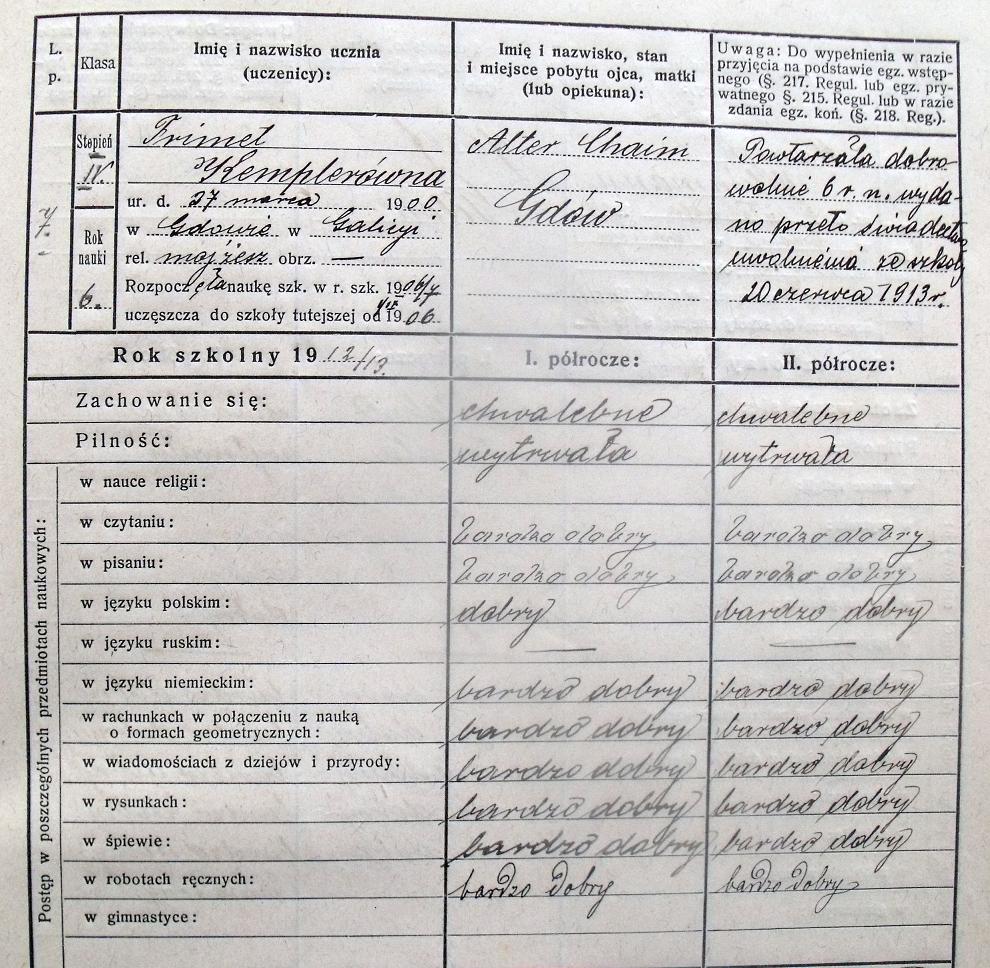 L. p.
Klasa
Imię i nazwisko ucznia
(uczenicy):
Imię i nazwisko, stan
i miejsce pobytu ojca, matki
(lub opiekuna):
Uwaga: Do wypełnienia w razie
przyjęcia na podstawie egz. wstęp-
nego (§. 217. Regul. lub egz. pry-
watnego §. 215. Regul. lub w razie
zdania egz. koń. (§. 218. Reg.).
7.
Stopień
IV.
Rok
nauki
6.
Frimet
Kemplerówna
ur. d. 27 marca 1900
w Gdowie w Galicyi
rel. mojżesz obrz. —
Rozpoczęła naukę szk. w r. szk. 1906/7
uczęszcza do szkoły tutejszej od 1906
Alter Chaim
Gdów
Powtarzała dobro-
wolnie 6 r. n. wyda-
no przeto świadectwo
uwolnienia ze szkoły
20 czerwca 1913 r.
Rok szkolny 1912/13. I. półrocze: II. półrocze:
Zachowanie się: chwalebne chwalebne
Pilność: wytrwała wytrwała
Postęp w poszczególnych przedmiotach naukowych:
w nauce religii:
w czytaniu: bardzo dobry bardzo dobry
w pisaniu: bardzo dobry bardzo dobry
w języku polskim: dobry bardzo dobry
w języku ruskim: — —
w języku niemieckim: bardzo dobry bardzo dobry
w rachunkach w połączeniu z nauką
o formach geometrycznych: bardzo dobry bardzo dobry
w wiadomościach z dziejów i przyrody: bardzo dobry bardzo dobry
w rysunkach: bardzo dobry bardzo dobry
w śpiewie: bardzo dobry bardzo dobry
w robotach ręcznych: bardzo dobry bardzo dobry
w gimnastyce: